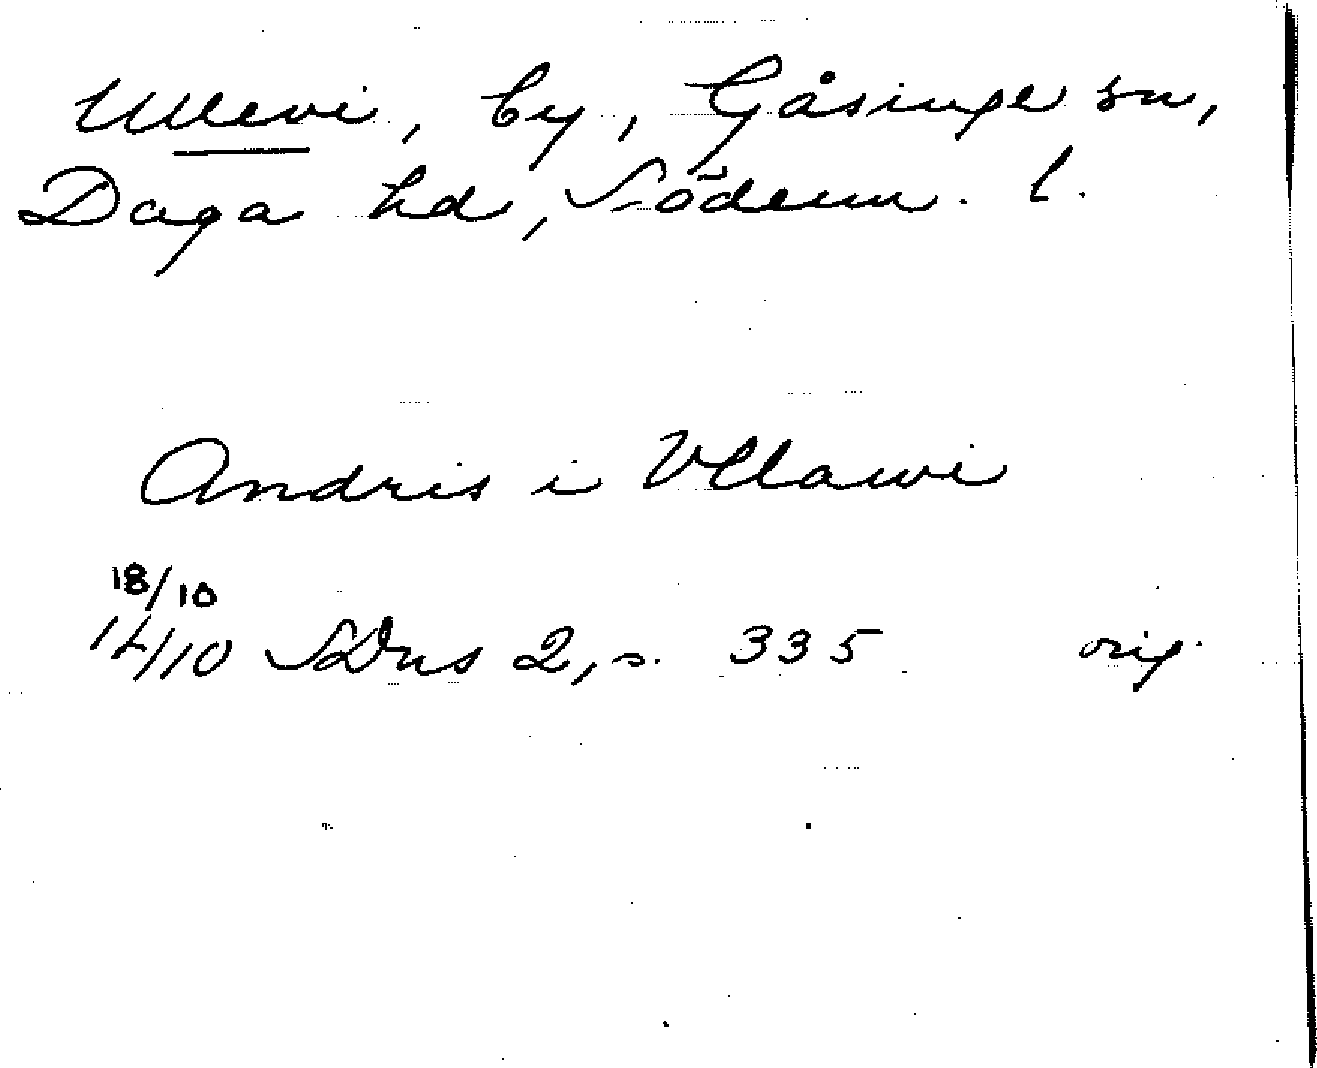 Ullevi, by, Gåsinge sn,
Daga hd, Söderm. l.
Andris i Vllawi
18/10
14/10 SDns 2, s. 335 orig.